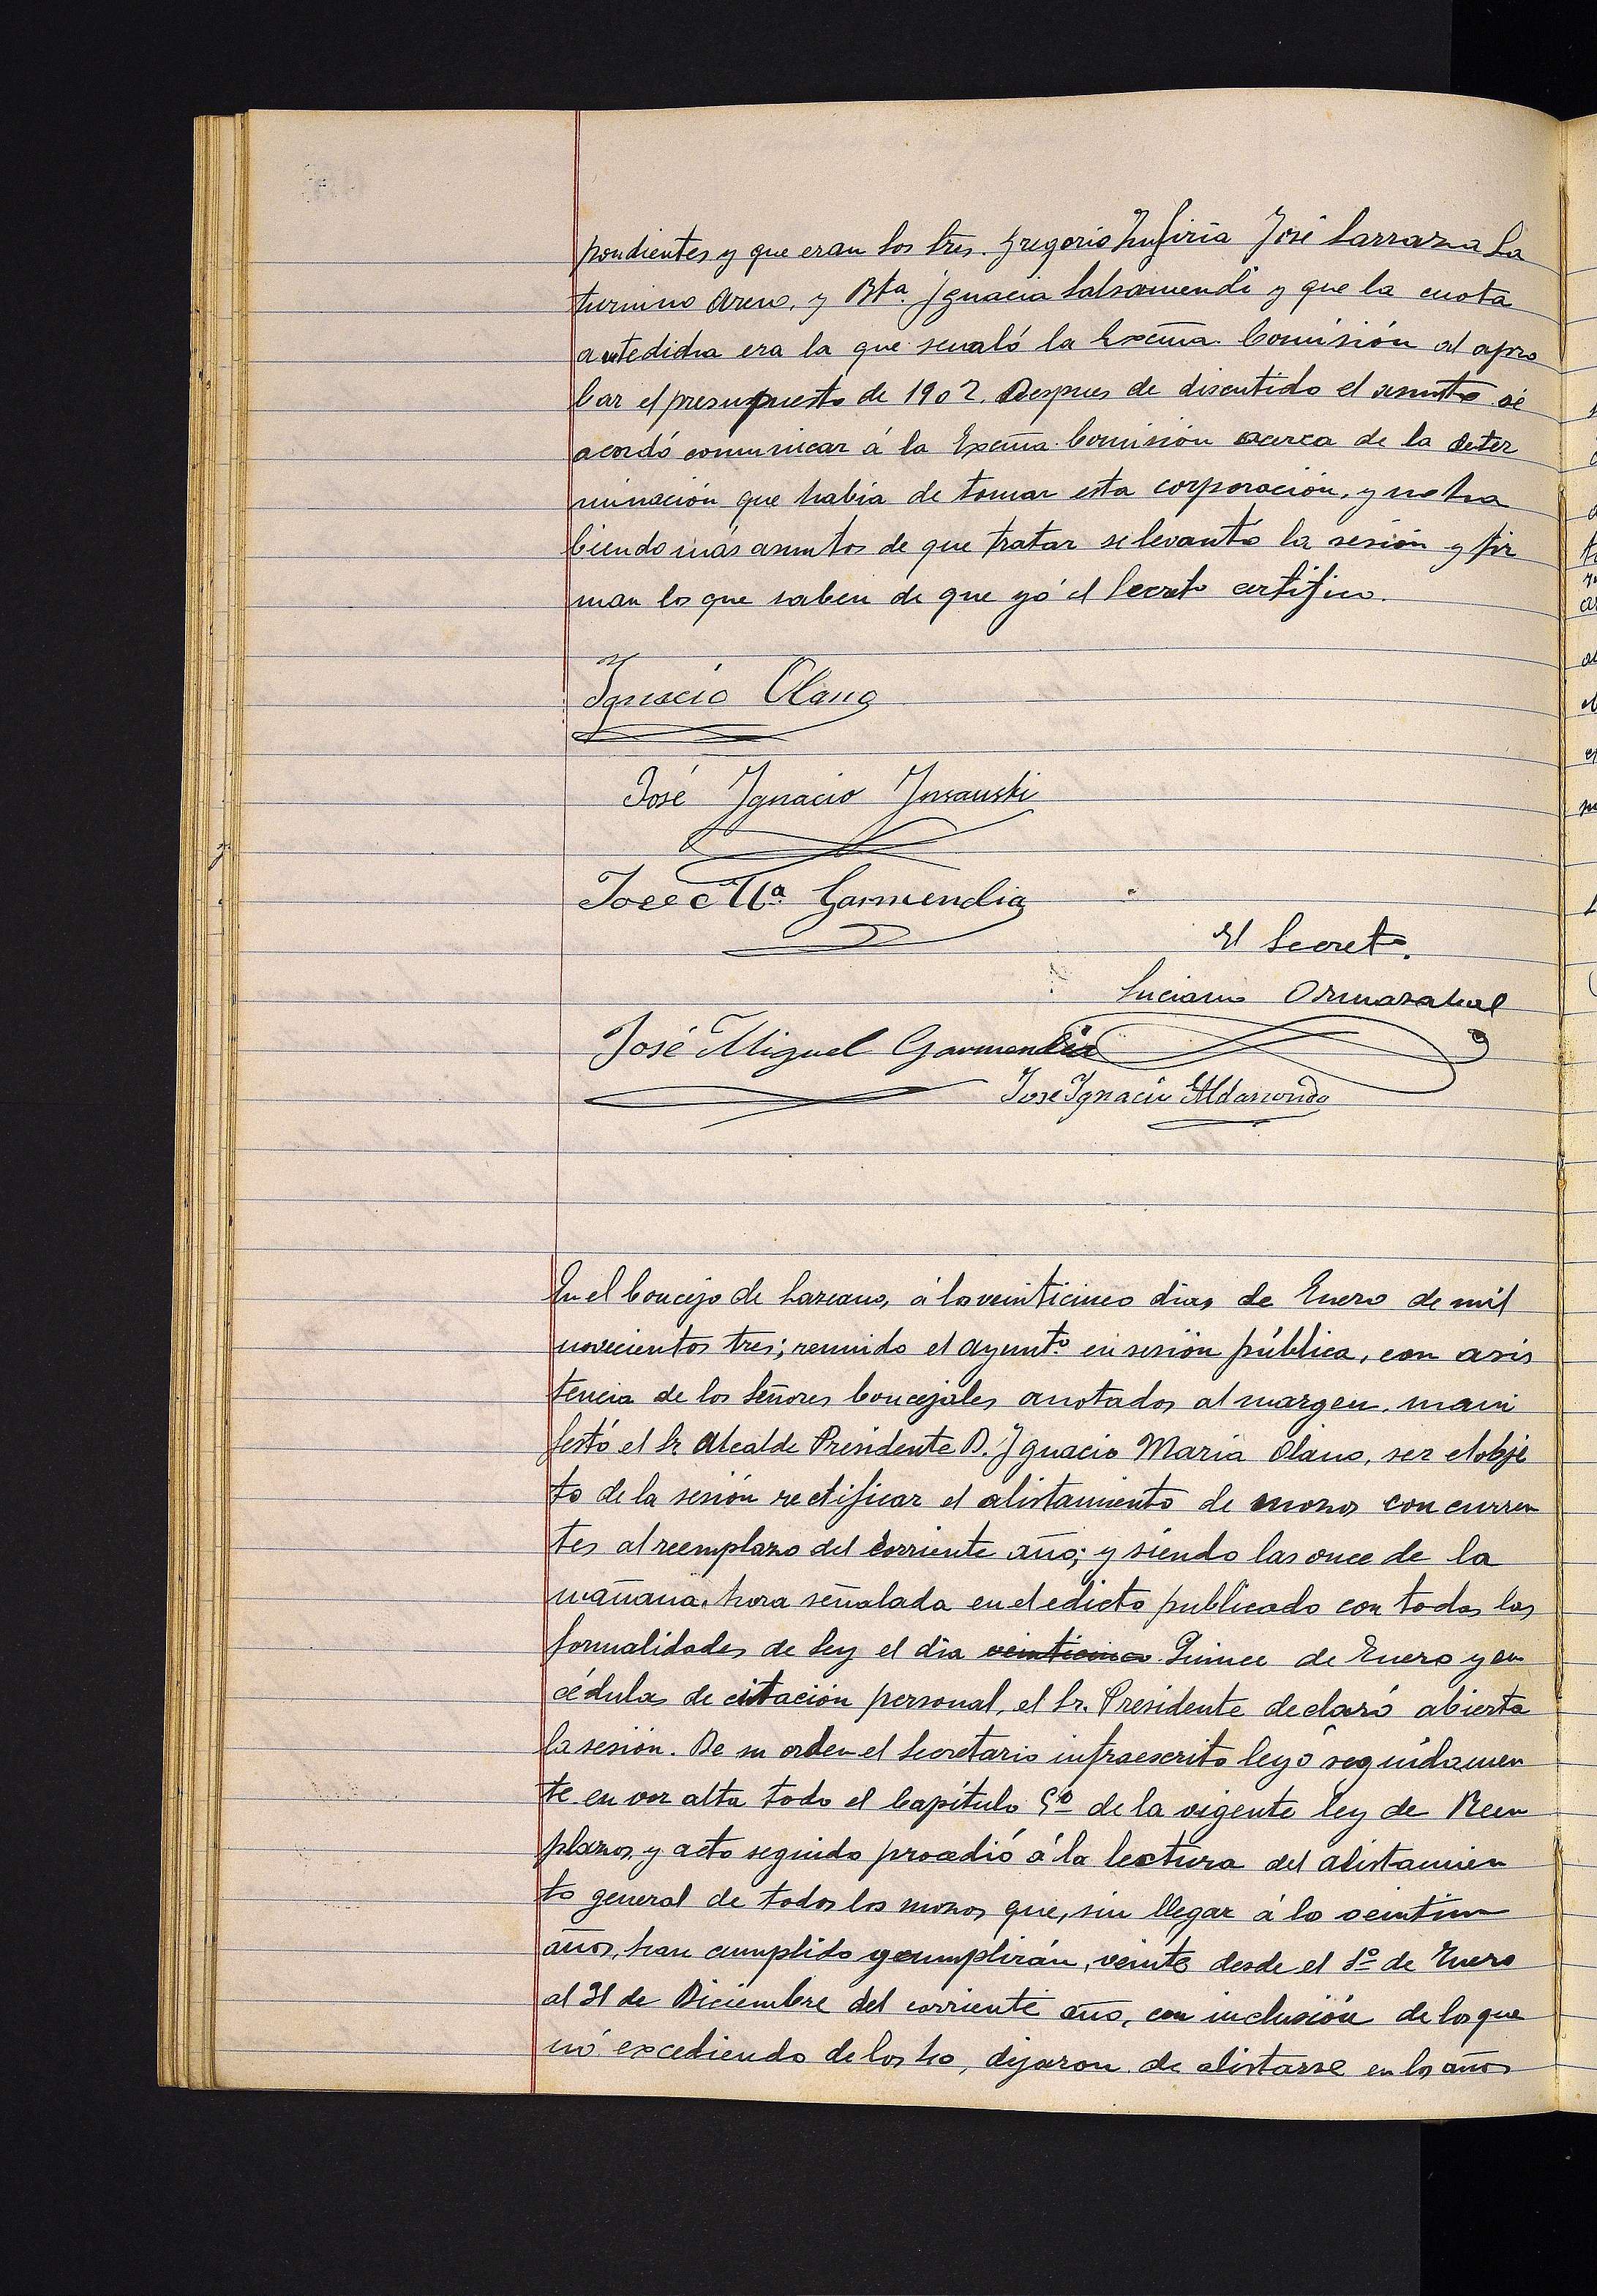 pondientes y que eran los tres. Gregorio José Larraza Sa
turnino Areno, y Bta. Ignacia Salsamendi y que la cuota
antedicha era la que señaló la Excma. Comisión al apro
bar el presupuesto de 1902. Despues de discutido el asunto se
acordó comunicar á la Excma. Comisión acerca de la deter
minación que habia de tomar esta corporación, y no ha
biendo más asuntos de que tratar se levantó la sesión y fir
man los que saben de que yó el Secretº certifico.
Ignacio Olano
José Ignacio Insausti
Jose Mª Garmendia
El Secretº.
Luciano Ormazabal
José Miguel Garmendia
Jose Ignacio Aldasoro
En el Concejo de Lazcano, á los veinticinco dias de Enero de mil
novecientos tres; reunido el ayuntº. en sesión pública, con asis
tencia de los Señores Concejales anotados al margen, mani
festó el Sr Alcalde Presidente D. Ignacio Maria Olano, ser el obje
to de la sesión rectificar el alistamiento de mozos concurren
tes al reemplazo del corriente año; y siendo las once de la
mañana, hora señalada en el edicto publicado con todas las
formalidades de ley el dia veinticinco Quince de Enero y en
cédulas de citación personal, el Sr. Presidente declaró abierta
la sesión. De su orden el Secretario infraescrito leyó seguidamen
te en voz alta todo el Capítulo 5º de la vigente ley de Reem
plazos, y acto seguido procedió á la lectura del alistamien
to general de todos los mozos que, sin llegar á los veintiun
años, han cumplido y cumplirán, veinte desde el 1º de Enero
al 31 de Diciembre del corriente año, con inclusión de los que
nó excediendo de los 40, dejaron de alistarse en los años